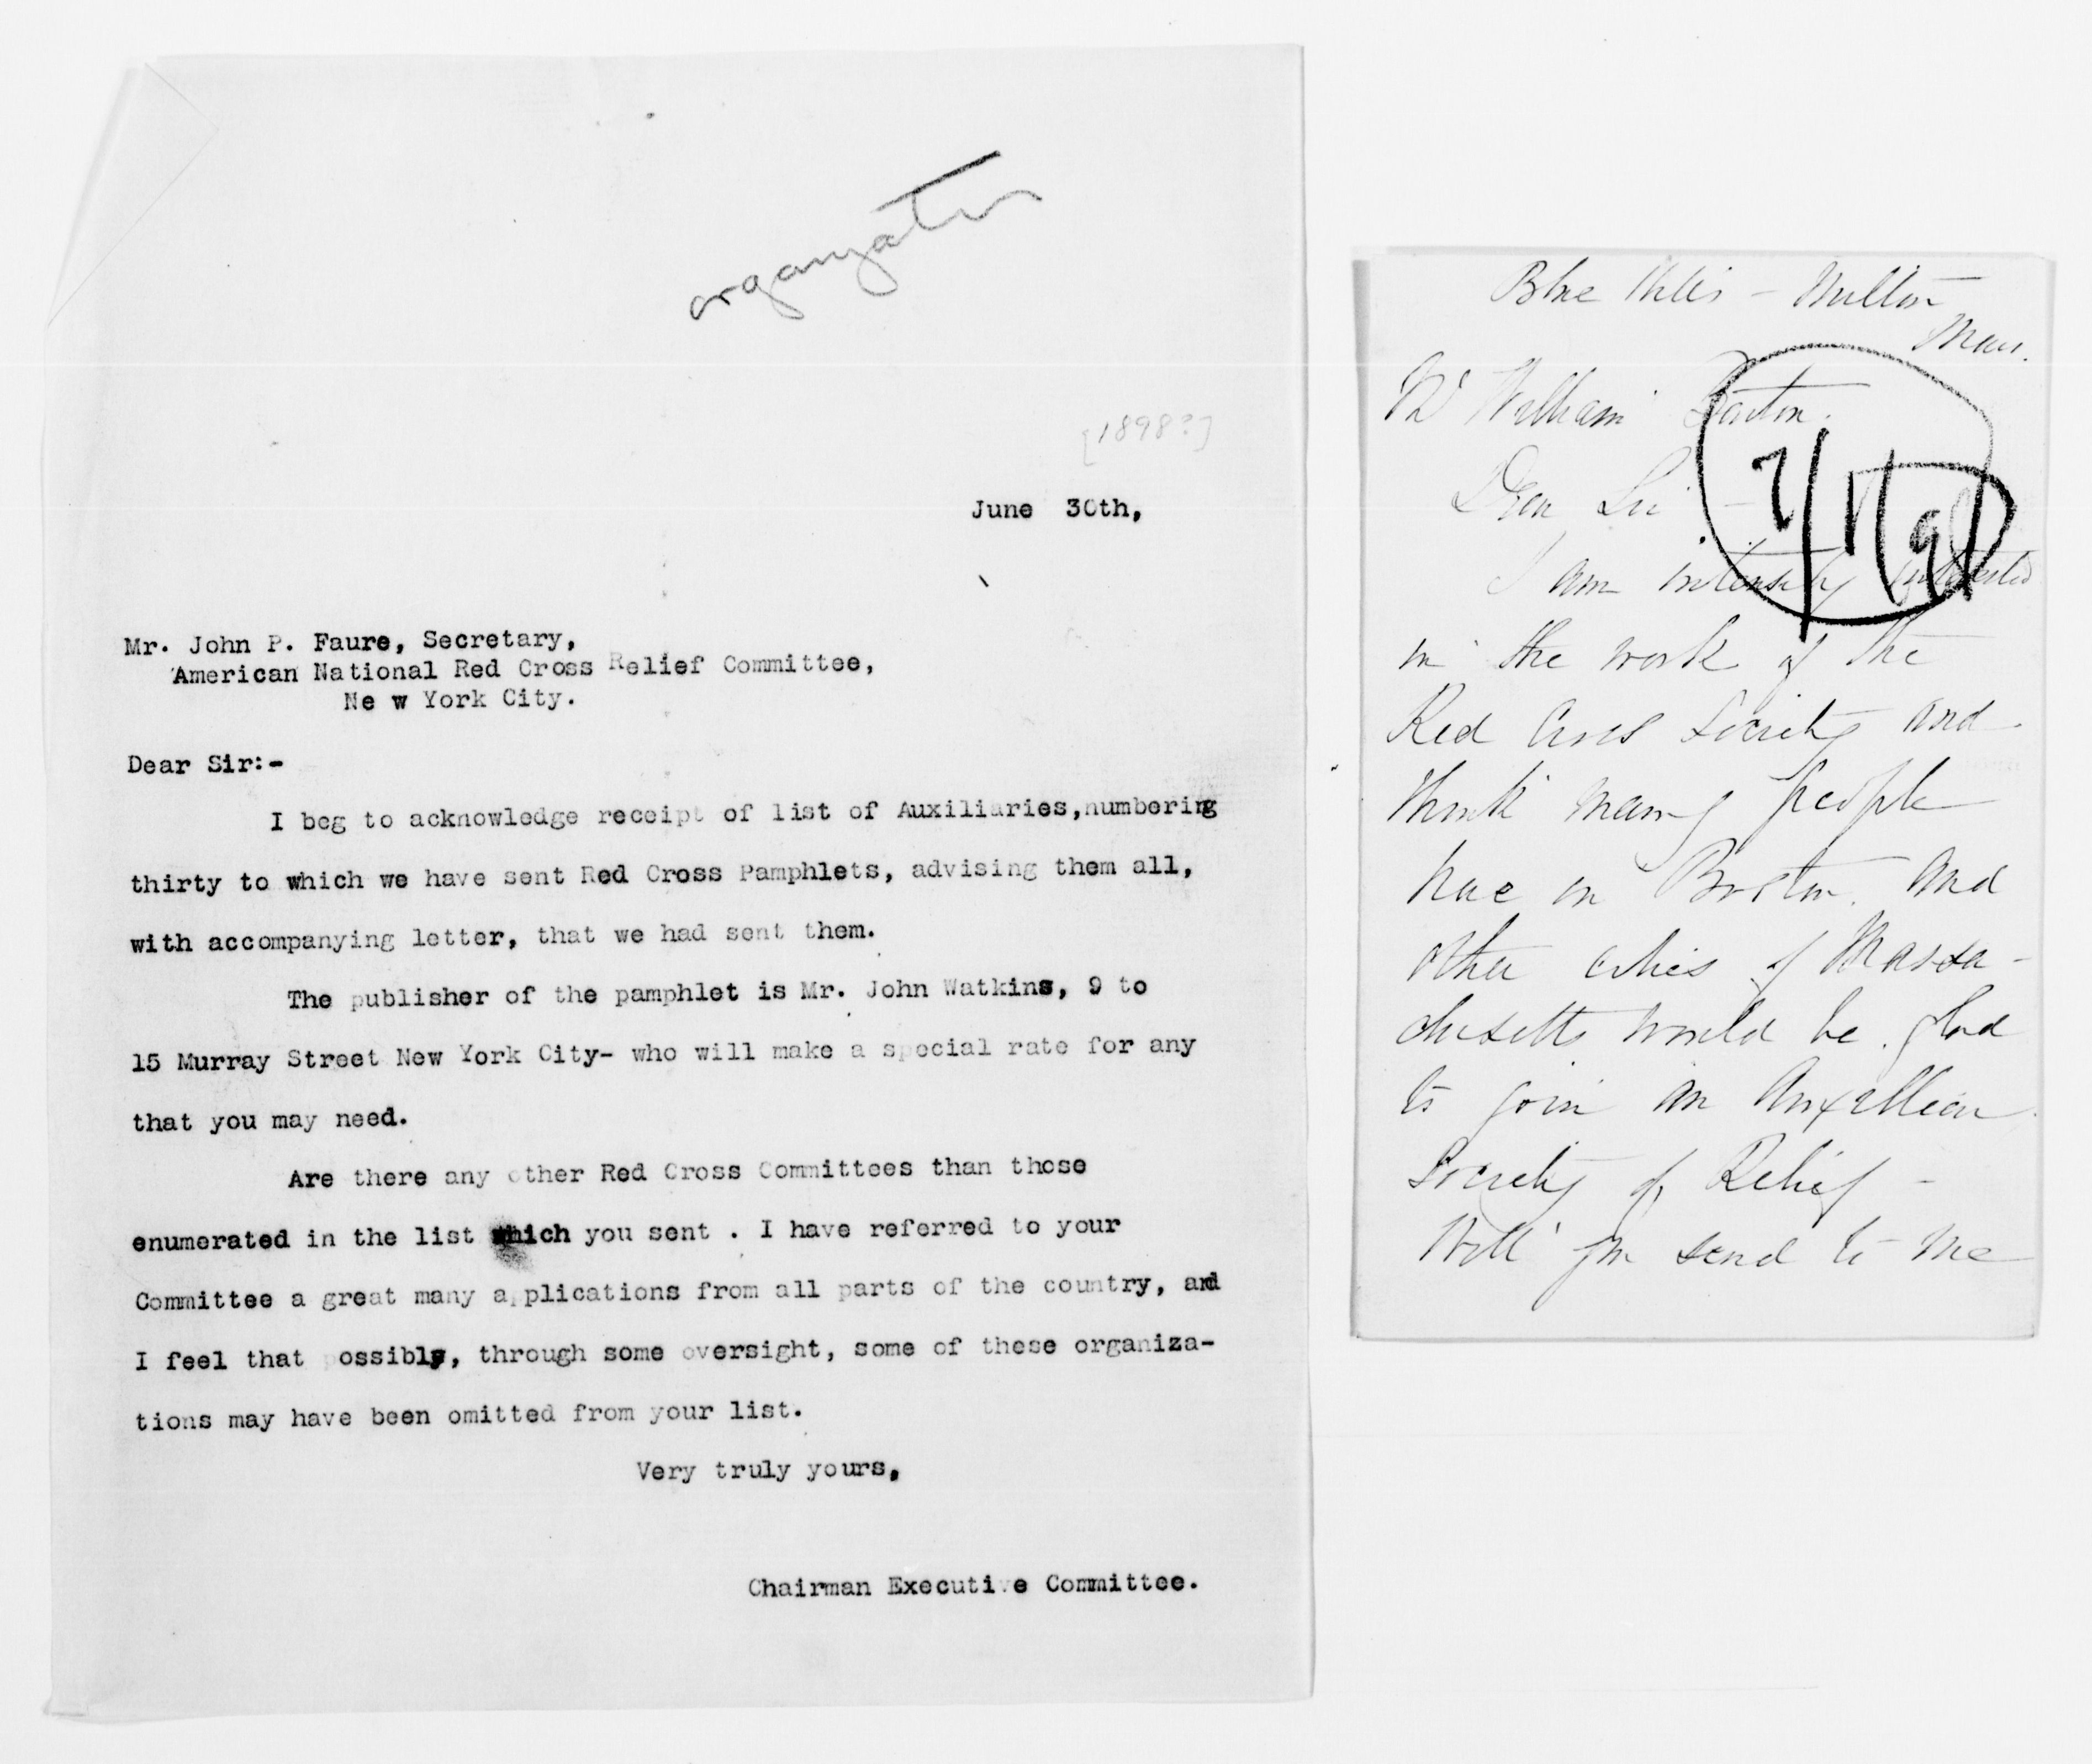 organization
[1898?]
June 30th,
Mr. John P. Faure, Secretary,
American National Red Cross Relief Committee,
Ne w York City.
Dear Sir:-
I beg to acknowledge receipt of list of Auxiliaries,numbering
thirty to which we have sent Red Cross Pamphlets, advising them all,
with accompanying letter, that we had sent them.
The publisher of the pamphlet is Mr. John Watkins, 9 to
15 Murray Street New York City- who will make a special rate for any
that you may need.
Are there any other Red Cross Committees than those
enumerated in the list which you sent . I have referred to your
Committee a great many applications from all parts of the country, and
I feel that possibly, through some oversight, some of these organiza-
tions may have been omitted from your list.
Very truly yours,
Chairman Executive Committee.
Blue Hills - Milton
Mass.
Mr William Barton.
Dear Sir -
7/1/98
I am intensely interested
in the work of the
Red Cross Society and
think many people
here in Boston and
other cities of Massa-
chusetts would be glad
to join an
Society of Relief -
Will you send to me